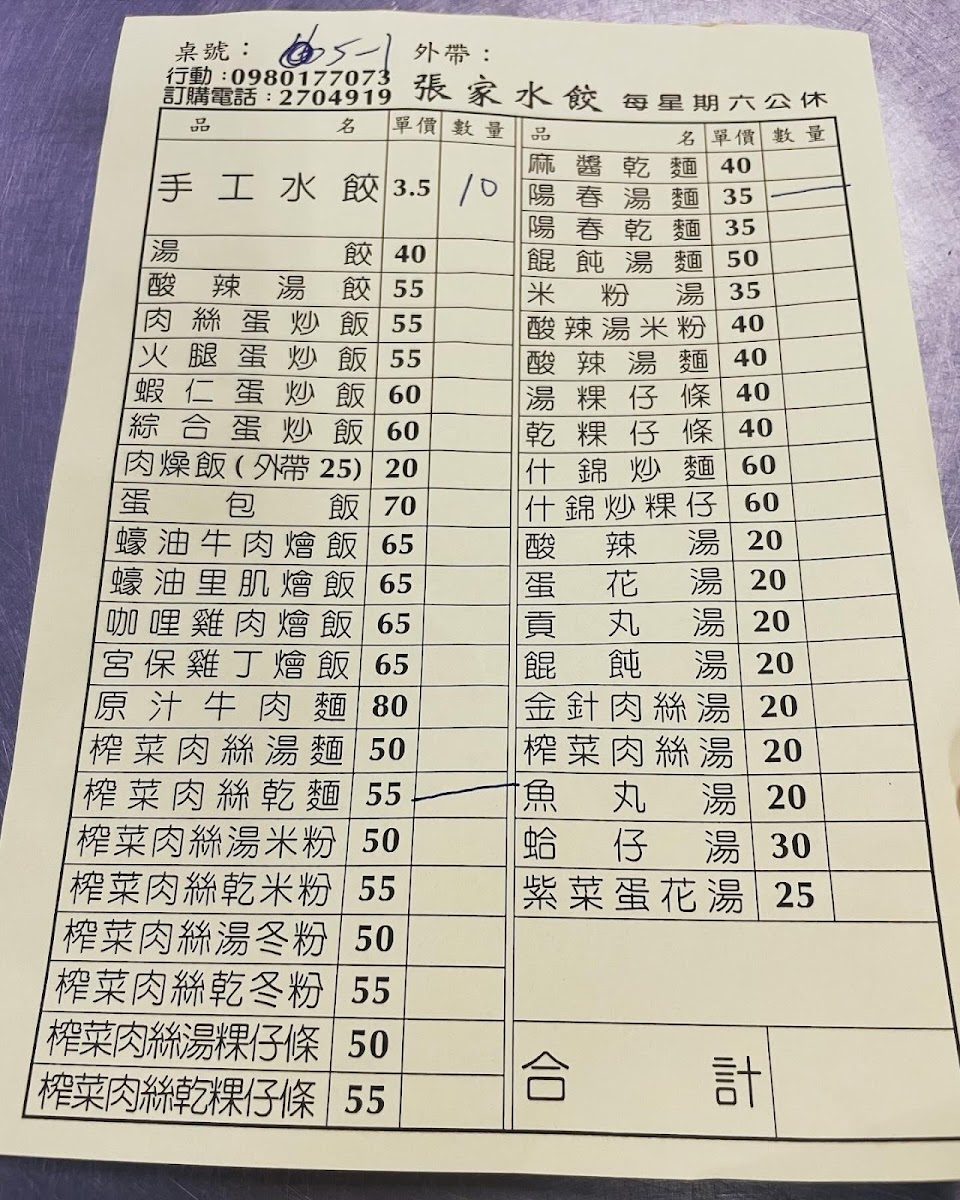 桌號： 05-1 外帶：
行動：0980177073
訂購電話：2704919 張家水餃 每星期六公休
品名 單價 數量
手工水餃 3.5 10
湯餃 40
酸辣湯餃 55
肉絲蛋炒飯 55
火腿蛋炒飯 55
蝦仁蛋炒飯 60
綜合蛋炒飯 60
肉燥飯(外帶25) 20
蛋包飯 70
蠔油牛肉燴飯 65
蠔油里肌燴飯 65
咖哩雞肉燴飯 65
宮保雞丁燴飯 65
原汁牛肉麵 80
榨菜肉絲湯麵 50
榨菜肉絲乾麵 55 一
榨菜肉絲湯米粉 50
榨菜肉絲乾米粉 55
榨菜肉絲湯冬粉 50
榨菜肉絲乾冬粉 55
榨菜肉絲湯粿仔條 50
榨菜肉絲乾粿仔條 55
品名 單價 數量
麻醬乾麵 40
陽春湯麵 35 一
陽春乾麵 35
餛飩湯麵 50
米粉湯 35
酸辣湯米粉 40
酸辣湯麵 40
湯粿仔條 40
乾粿仔條 40
什錦炒麵 60
什錦炒粿仔 60
酸辣湯 20
蛋花湯 20
貢丸湯 20
餛飩湯 20
金針肉絲湯 20
榨菜肉絲湯 20
魚丸湯 20
蛤仔湯 30
紫菜蛋花湯 25
合計